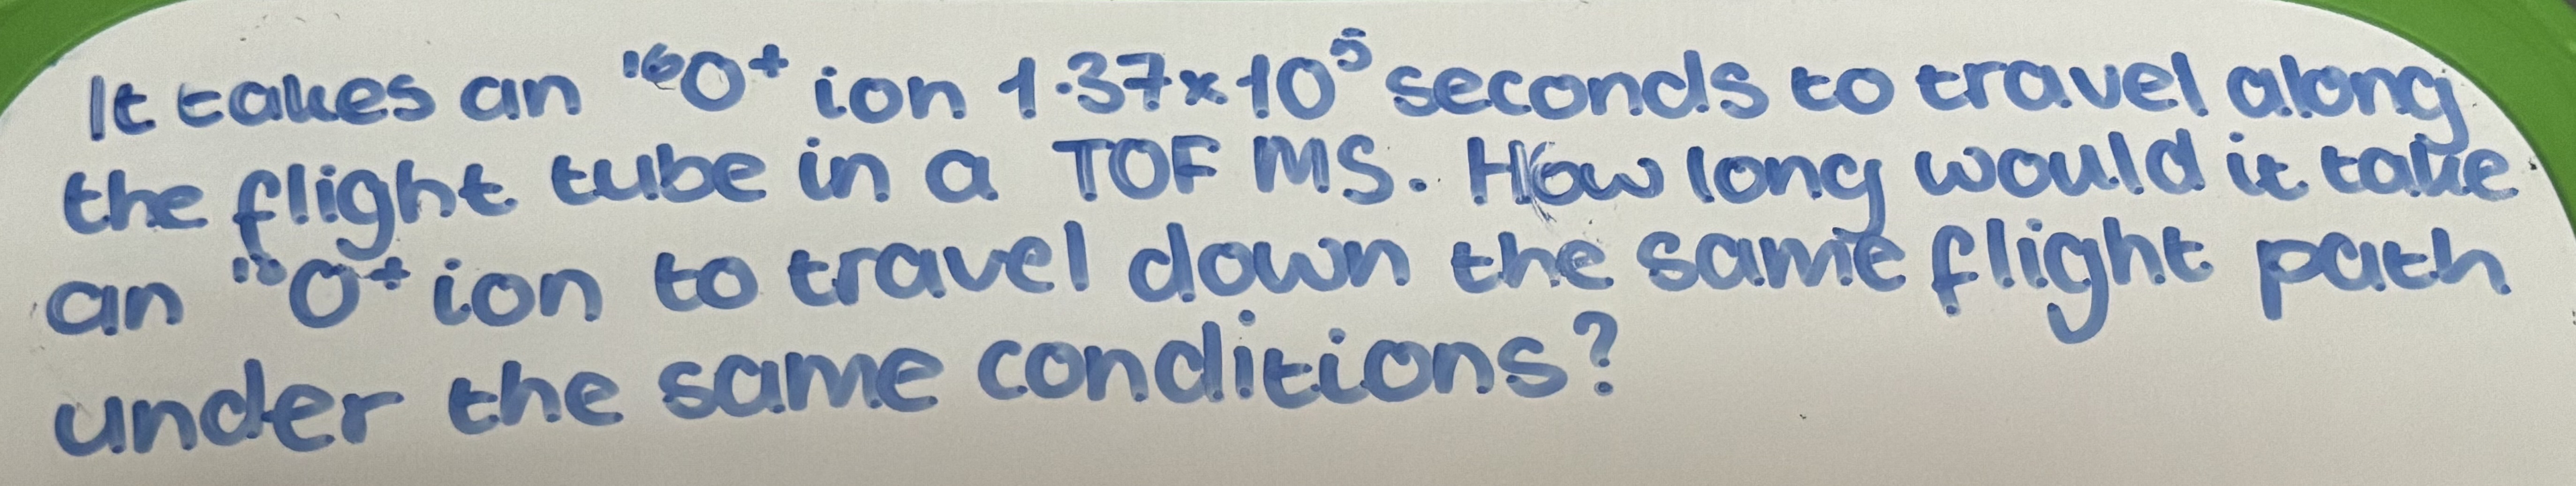 It takes an ¹⁶O⁺ ion 1.37×10⁵ seconds to travel along
the flight tube in a TOF MS. How long would it take
an ¹⁸O⁺ ion to travel down the same flight path
under the same conditions?